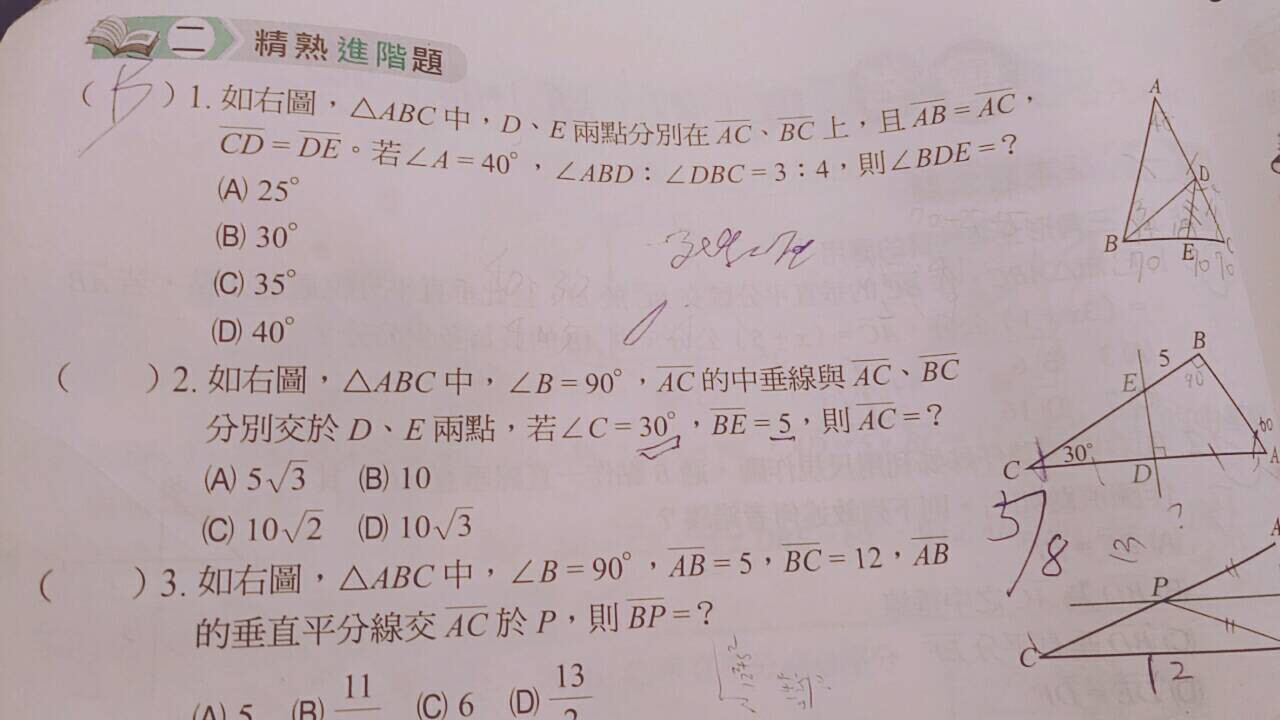 二 精熟進階題
( B ) 1. 如右圖，△ABC 中，D、E 兩點分別在 A̅C̅、B̅C̅ 上，且 A̅B̅ = A̅C̅，
C̅D̅ = D̅E̅。若∠A = 40°，∠ABD：∠DBC = 3：4，則∠BDE = ？
(A) 25°
(B) 30°
(C) 35°
(D) 40°
A
D
B
E
C
70
70 70
( ) 2. 如右圖，△ABC 中，∠B = 90°，A̅C̅ 的中垂線與 A̅C̅、B̅C̅
分別交於 D、E 兩點，若∠C = 30°，B̅E̅ = 5，則 A̅C̅ = ？
(A) 5√3 (B) 10
(C) 10√2 (D) 10√3
B
5
E
90
60
C
30°
D
A
( ) 3. 如右圖，△ABC 中，∠B = 90°，A̅B̅ = 5，B̅C̅ = 12，A̅B̅
的垂直平分線交 A̅C̅ 於 P，則 B̅P̅ = ？
(A) 5 (B) 11 (C) 6 (D) 13/2
?
A
P
C
12